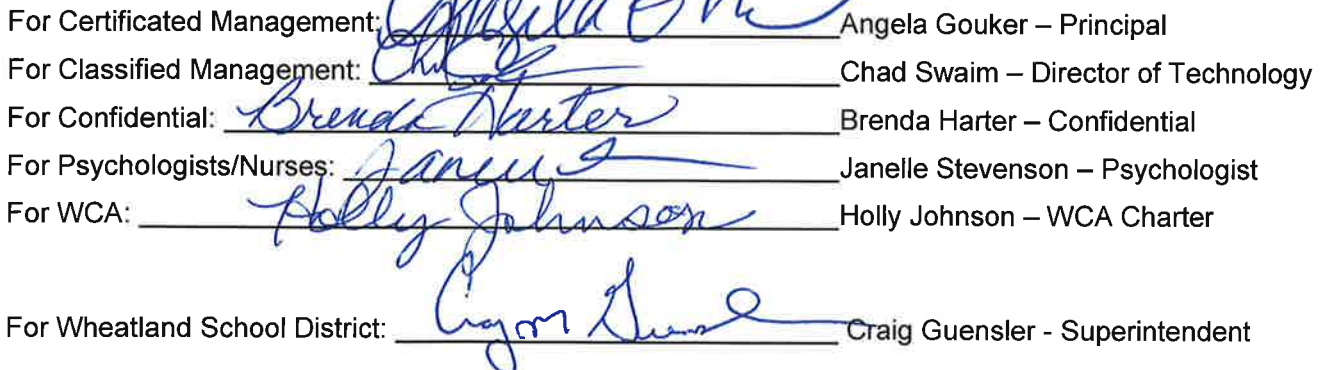 For Certificated Management: Angela Gouker – Principal
For Classified Management: Chad Swaim – Director of Technology
For Confidential: Brenda Harter Brenda Harter – Confidential
For Psychologists/Nurses: Janelle Stevenson – Psychologist
For WCA: Holly Johnson Holly Johnson – WCA Charter
For Wheatland School District: Craig Guensler - Superintendent